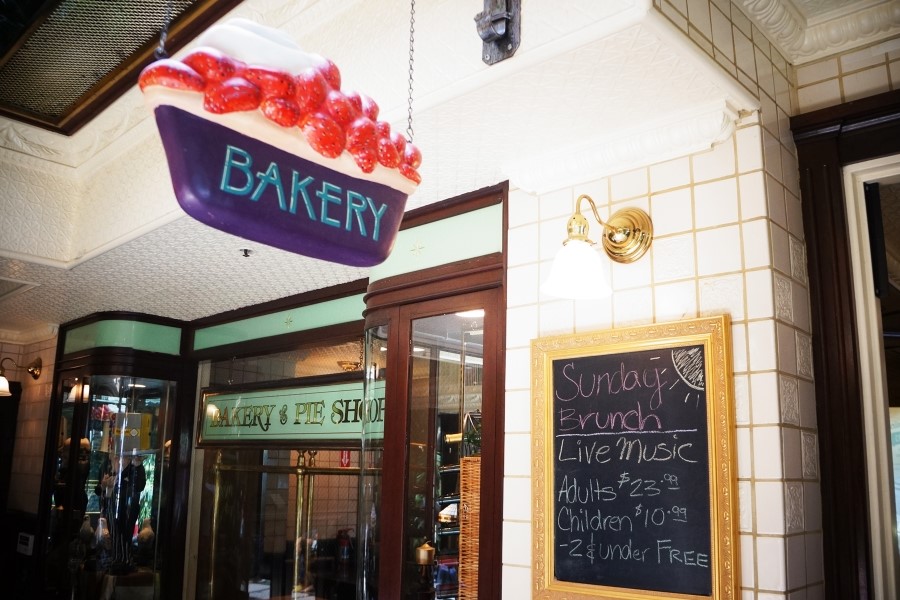 BAKERY
BAKERY & PIE SHOP
Sunday
Brunch
Live Music
Adults $23.99
Children $10.99
-2 & under FREE